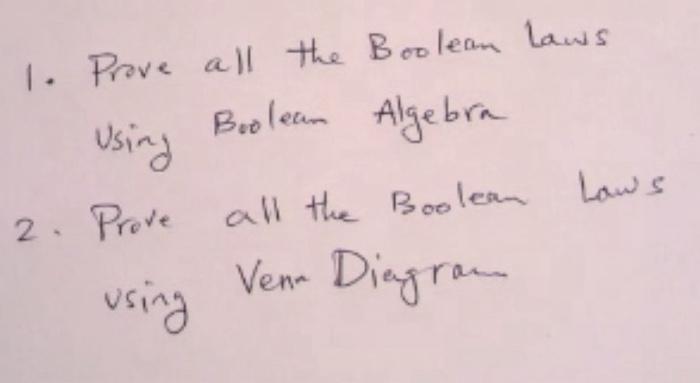 1. Prove all the Boolean Laws
Using Boolean Algebra
2. Prove all the Boolean Laws
using Venn Diagram